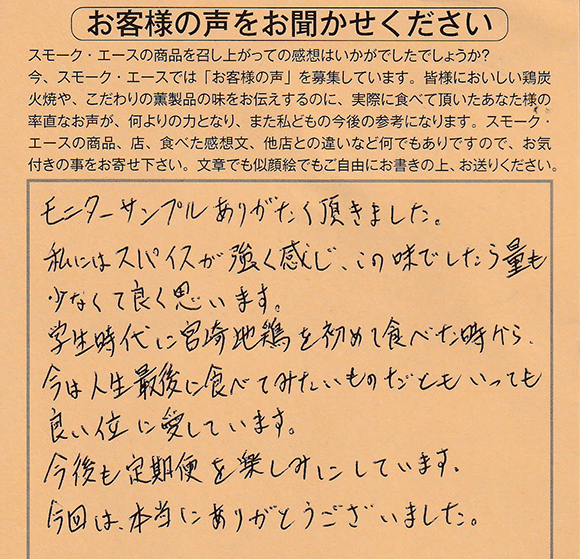 お客様の声をお聞かせください
スモーク・エースの商品を召し上がっての感想はいかがでしたでしょうか?
今、スモーク・エースでは「お客様の声」を募集しています。皆様においしい鶏炭
火焼や、こだわりの薫製品の味をお伝えするのに、実際に食べて頂いたあなた様の
率直なお声が、何よりの力となり、また私どもの今後の参考になります。スモーク・
エースの商品、店、食べた感想文、他店との違いなど何でもありですので、お気
付きの事をお寄せ下さい。文章でも似顔絵でもご自由にお書きの上、お送りください。
モニターサンプルありがたく頂きました。
私にはスパイスが強く感じ、この味でしたら量も
少なくて良く思います。
学生時代に宮崎地鶏を初めて食べた時から、
今は人生最後に食べてみたいものだともいっても
良い位に愛しています。
今後も定期便を楽しみにしています。
今回は、本当にありがとうございました。